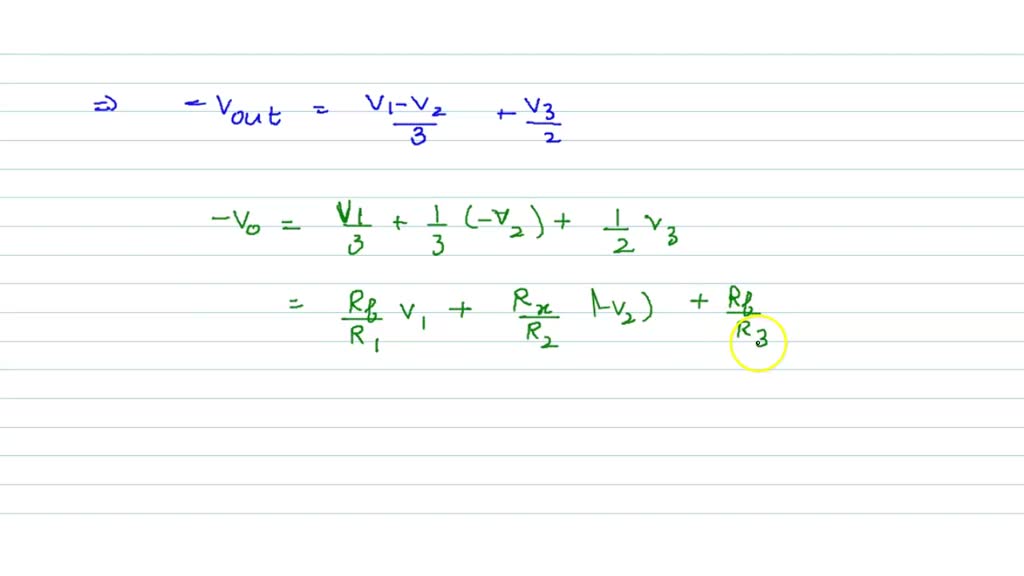 ⇒ - Vout = V1-V2/3 + V3/2
-Vo = V1/3 + 1/3 (-V2) + 1/2 V3
= Rf/R1 V1 + Rx/R2 (-V2) + Rf/R3